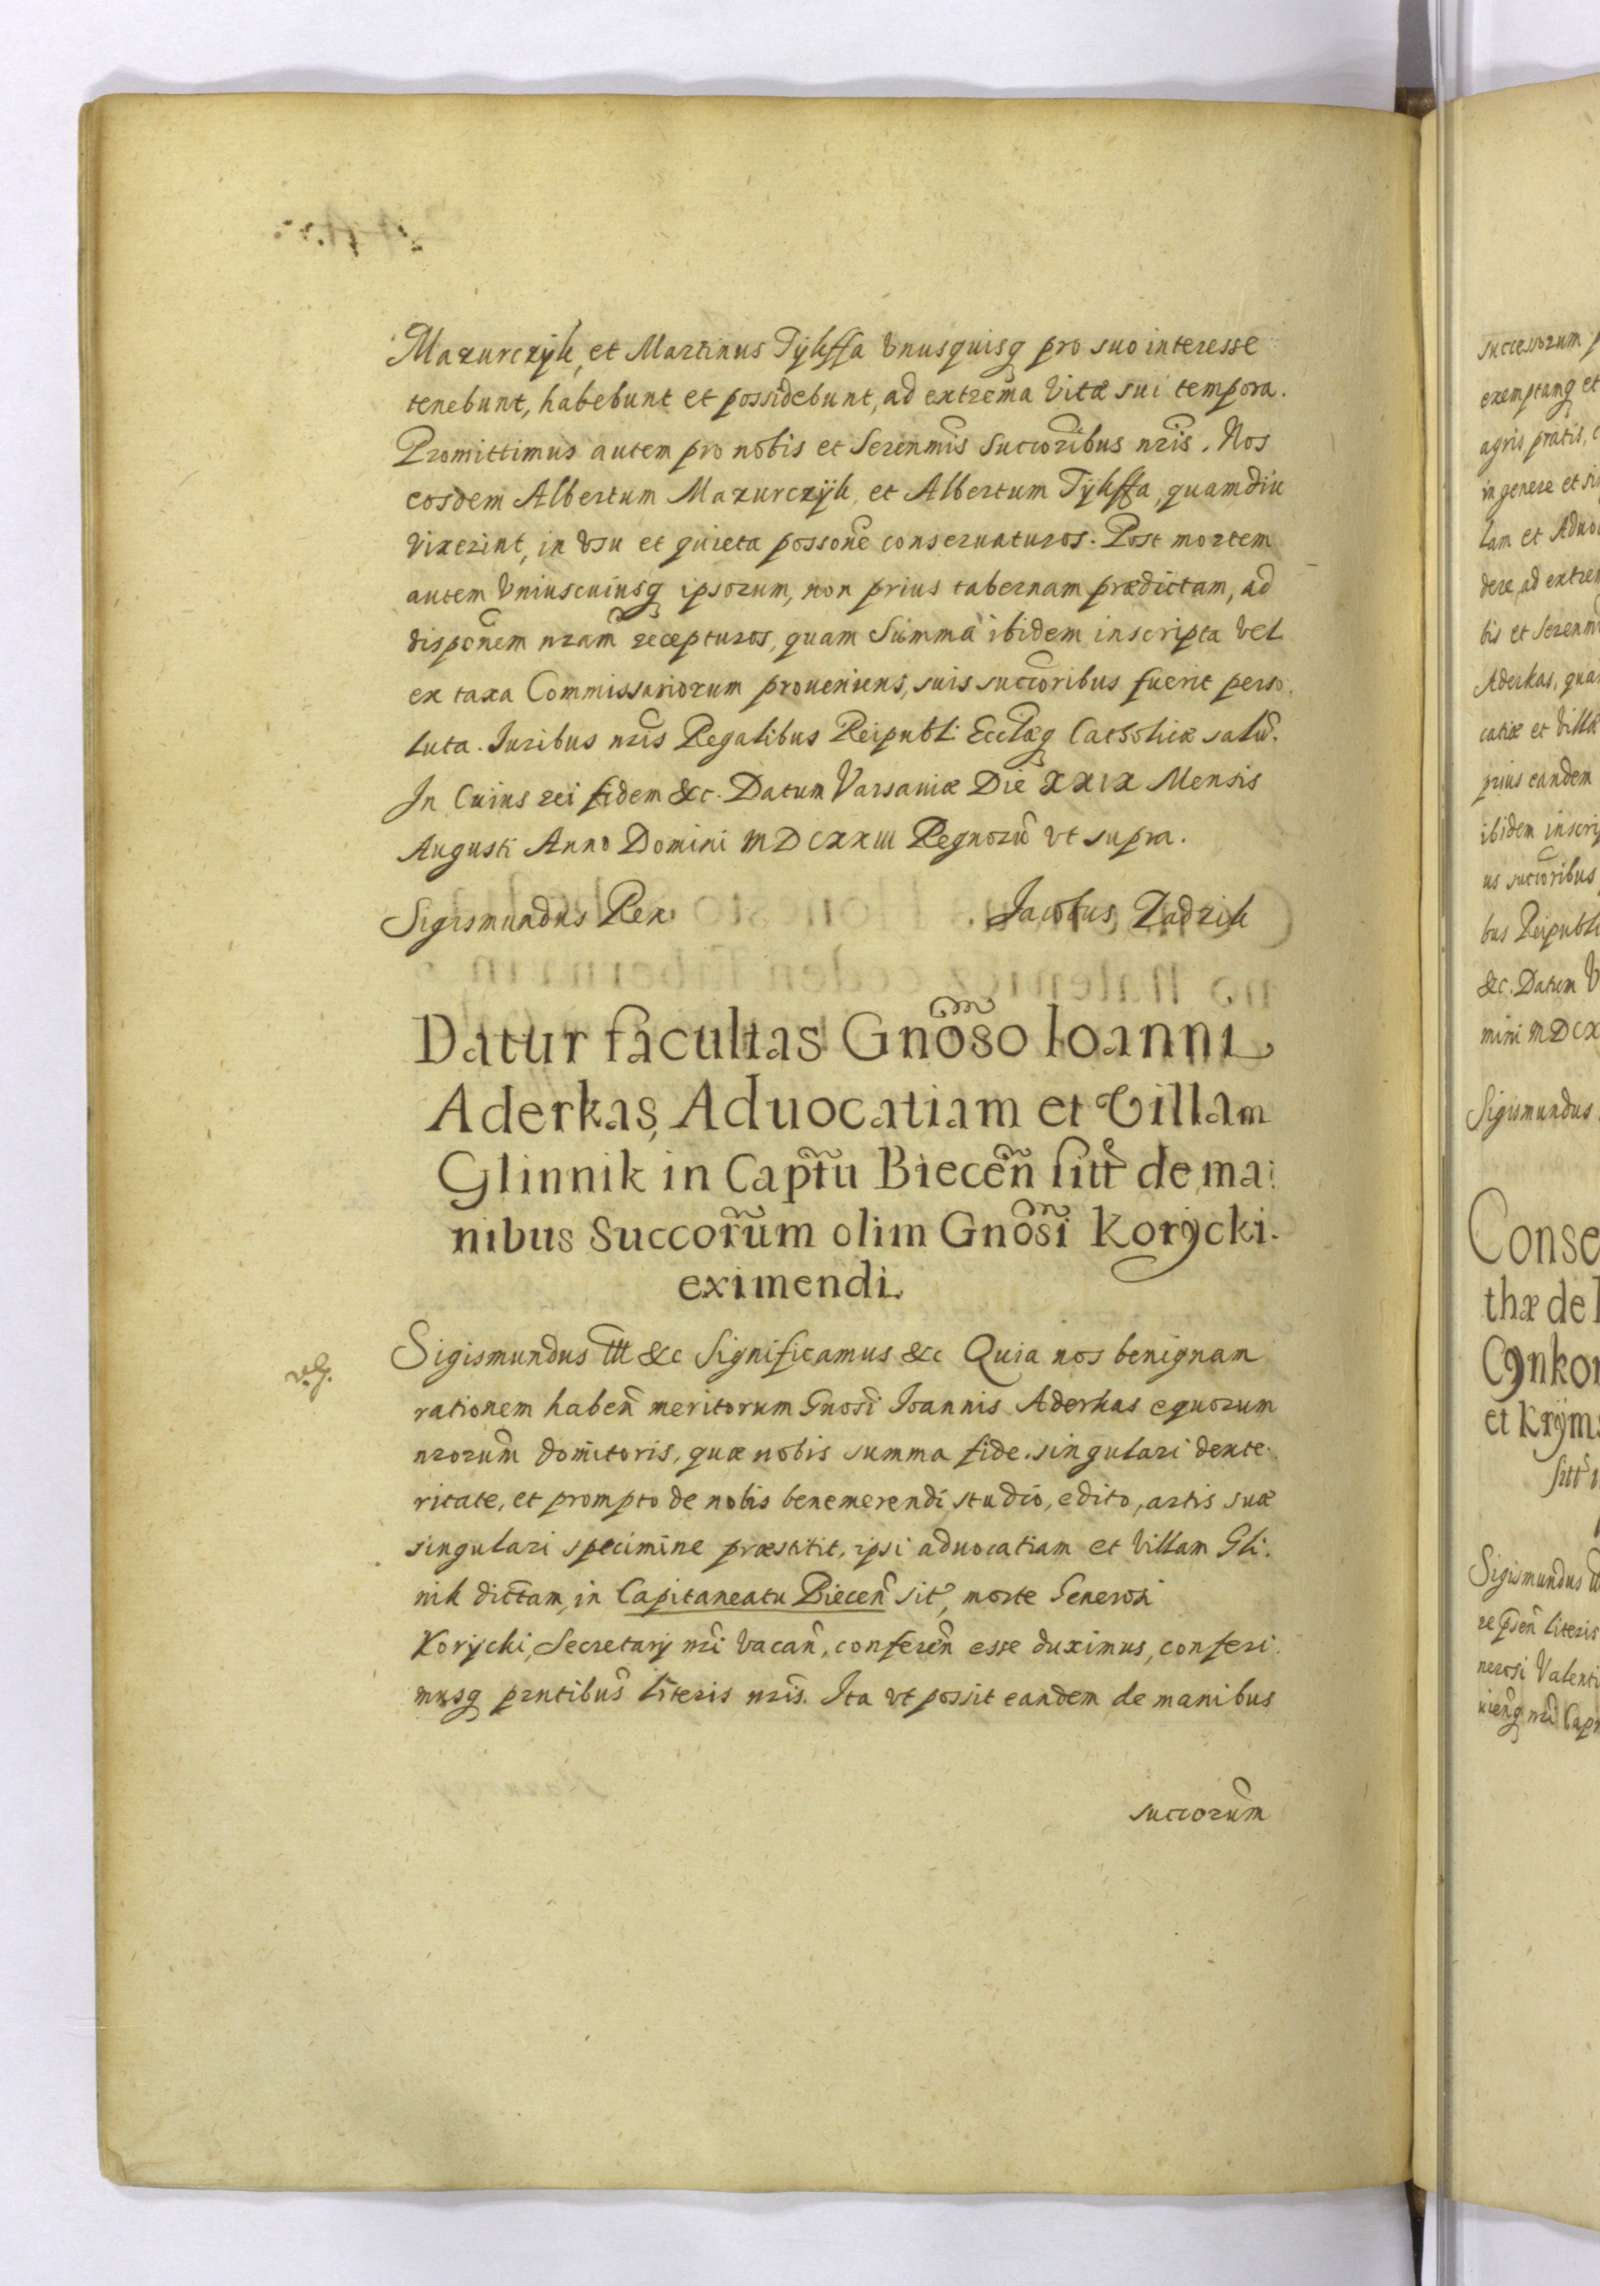 Mazurczyk, et Martinus Tykffa Vnusquisq pro suo interesse
tenebunt, habebunt et possidebunt, ad extrema Vitæ sui tempora.
Promittimus autem pro nobis et Serenmis Succoribus nris. Nos
eosdem Albertum Mazurczÿk, et Albertum Tÿkffa, quamdiu
vixerint, in Vsu et quieta possone conseruaturos. Post mortem
autem Vniuscuiusq ipsorum, non prius tabernam prædictam, ad
disponem nram recepturos, quam Summa ibidem inscripta vel
ex taxa Commissariorum proueniens, suis succoribus fuerit perso
luta. Iuribus nris Regalibus Reipubli Ecclæq Catholicæ saluis.
In Cuius rei fidem &c. Datum Varsauiæ Die XXIX Mensis
Augusti Anno Domini MDCXXIII Regnorũ vt supra.
Sigismundus Rex. Jacobus Zadzik
Datur facultas Gnoso Ioanni
Aderkas, Aduocatiam et Villam
Glinnik in Captu Biecen sitt de ma:
nibus Succorum olim Gnosi Korycki.
eximendi.
Sigismundus III &c Significamus &c Quia nos benignam
rationem haben meritorum Gnosi Ioannis Aderkas equorum
nrorum domitoris, quæ nobis summa fide, singulari dexte
ritate, et prompto de nobis benemerendi studio, edito, artis suæ
singulari specimine præstitit, ipsi aduocatiam et Villam Gli.
nik dictam, in Capitaneatu Biecen sit, morte Generosi
Korycki, Secretarÿ nri vacan, conferen esse duximus, conferi
musq prntibus literis nris. Ita vt possit eandem de manibus
succorum
successorum
exemptamq et
agris pratis,
in genere et
lam et Aduo
dere, ad extrem
bis et Serenm
Aderkas, qua
catiæ et Villæ
prius eandem
ibidem inscrip
us succoribus
bus Reipubli
&c. Datum V
mini MDCX
Sigismundus
Conse
thæ de
Cynkor
et Krÿms
sitt
Sigismundus
literis
nerosi Valenti
nri Cap